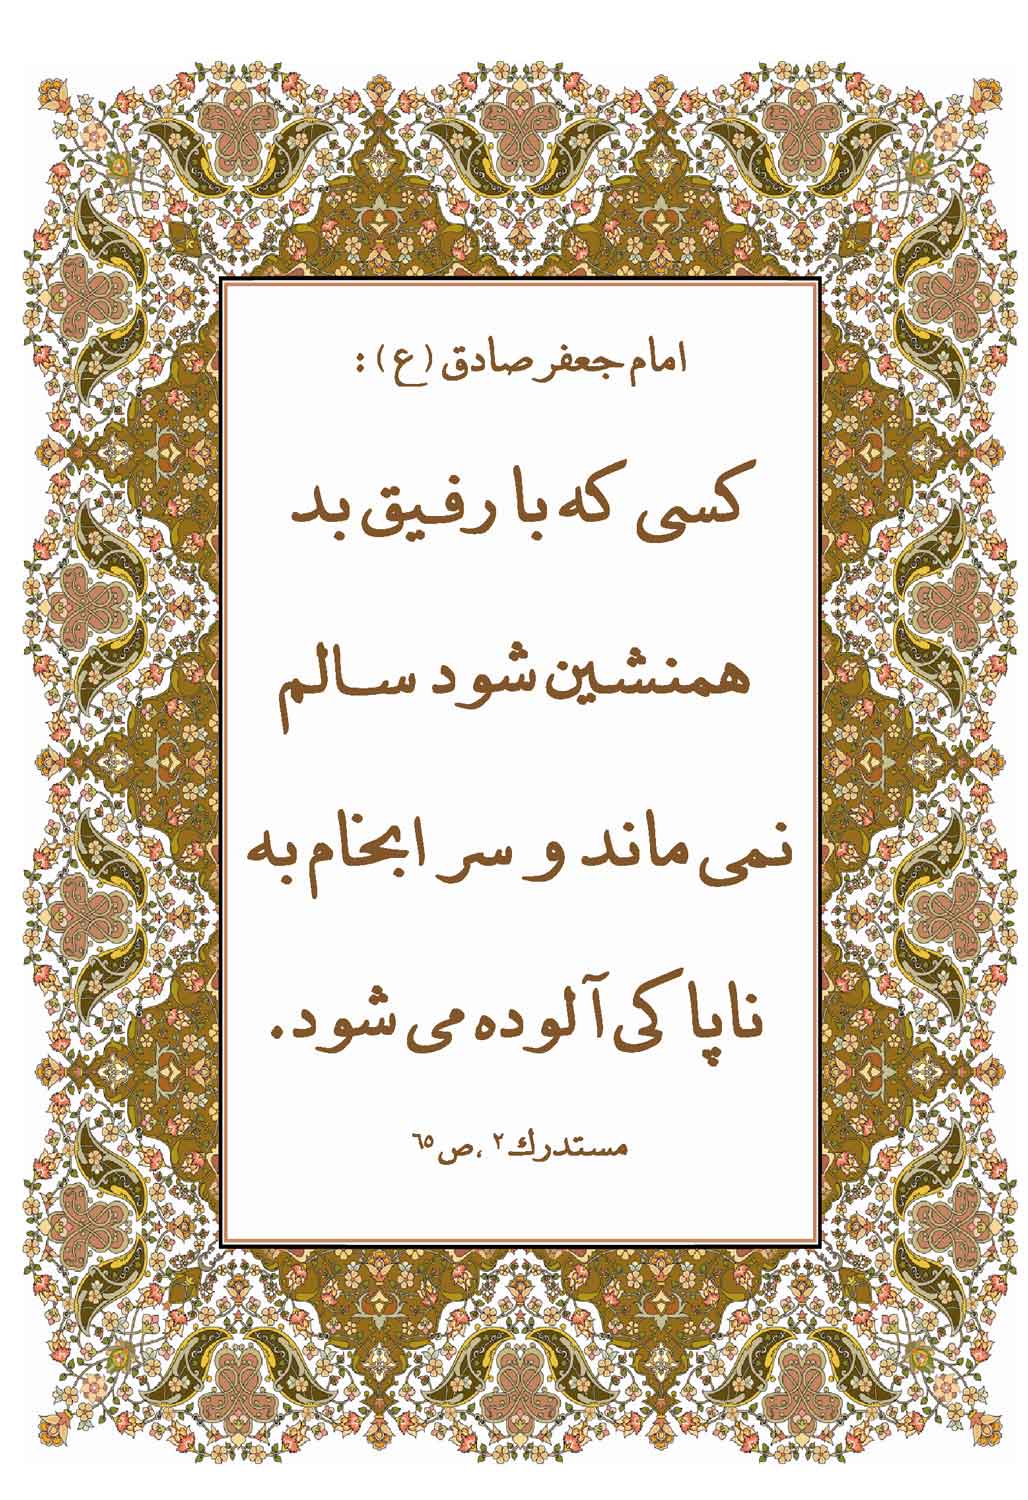 امام جعفر صادق (ع) :
کسی که با رفیق بد
همنشین شود سالم
نمی ماند و سر انجام به
ناپاکی آلوده می شود.
مستدرك ۲ ،ص ٦٥